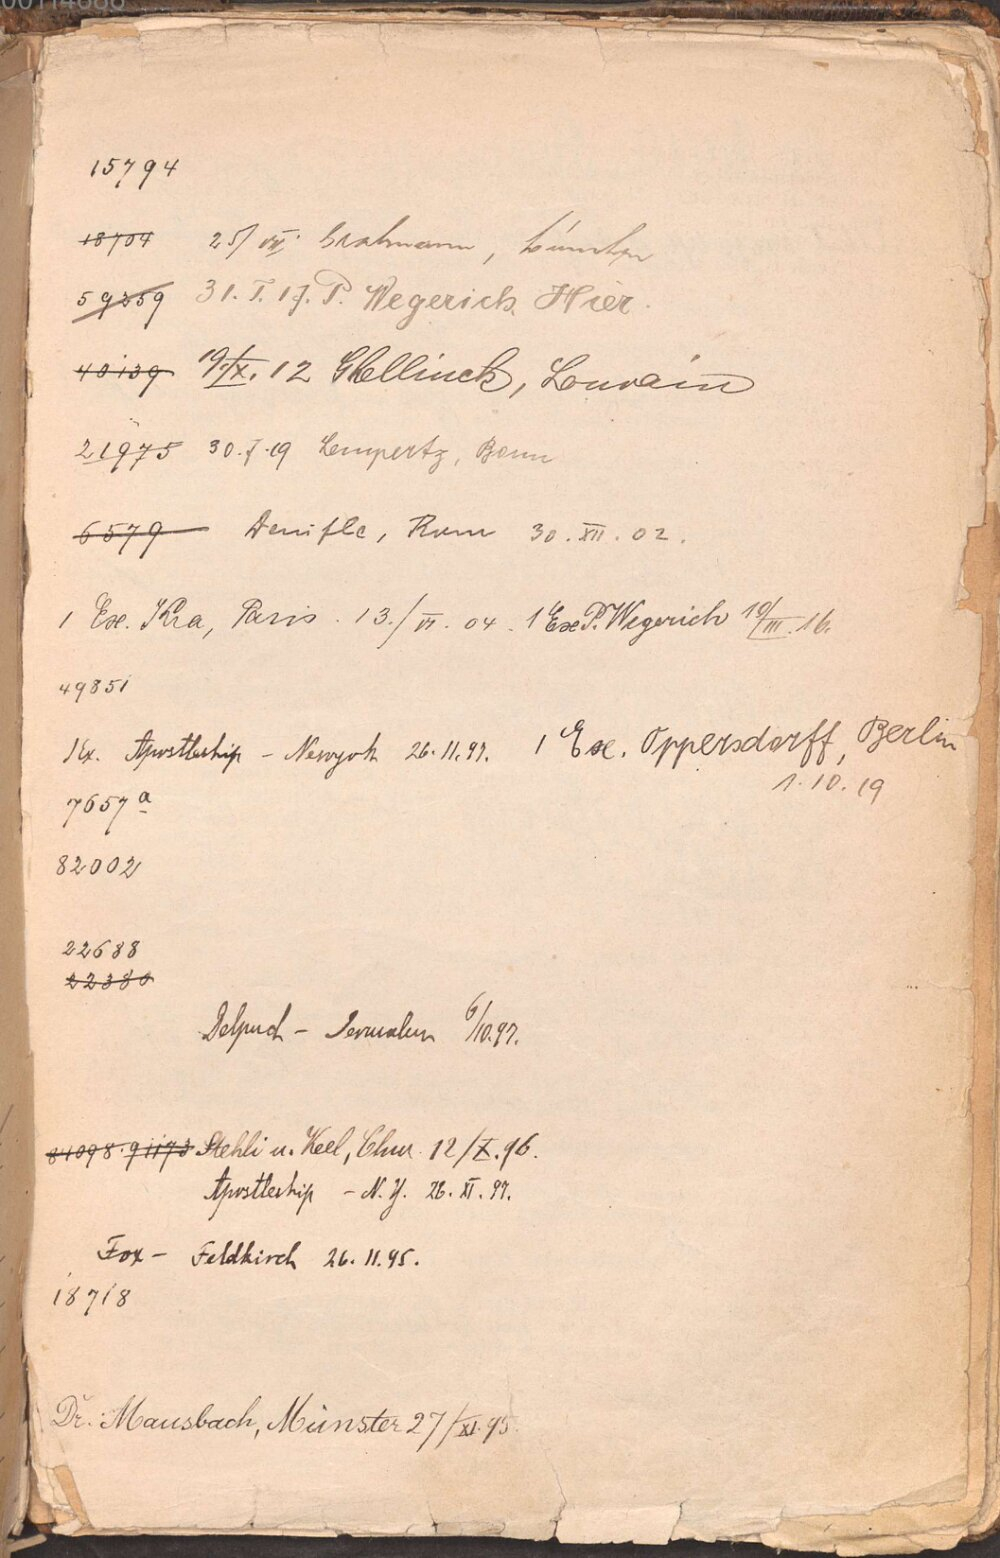 15794
18704 25/VII.
59259 31.I.17. P. Wegerich Hier.
40139 19/IX. 12 Ghellinck, Louvain
21975 30.I.19 Lempertz, Bonn
6579 Denifle, Rom 30.XII.02.
1 Ex. Kra, Paris. 13./VI. 04. 1 Ex P. Wegerich 19/III.16.
49851
1 Ex. Apostleship - Newyork 26.11.97. 1 Ex. Oppersdorff, Berlin
1.10.19
7657 a
82002
22688
22380
Delpuch - Jerusalem 6/10.97.
84098.91173 Stehli u. Keel, Chur. 12/X.96.
Apostleship - N.Y. 26.XI.97.
Fox - Feldkirch 26.11.95.
18718
Dr. Mausbach, Münster 27/XI.95